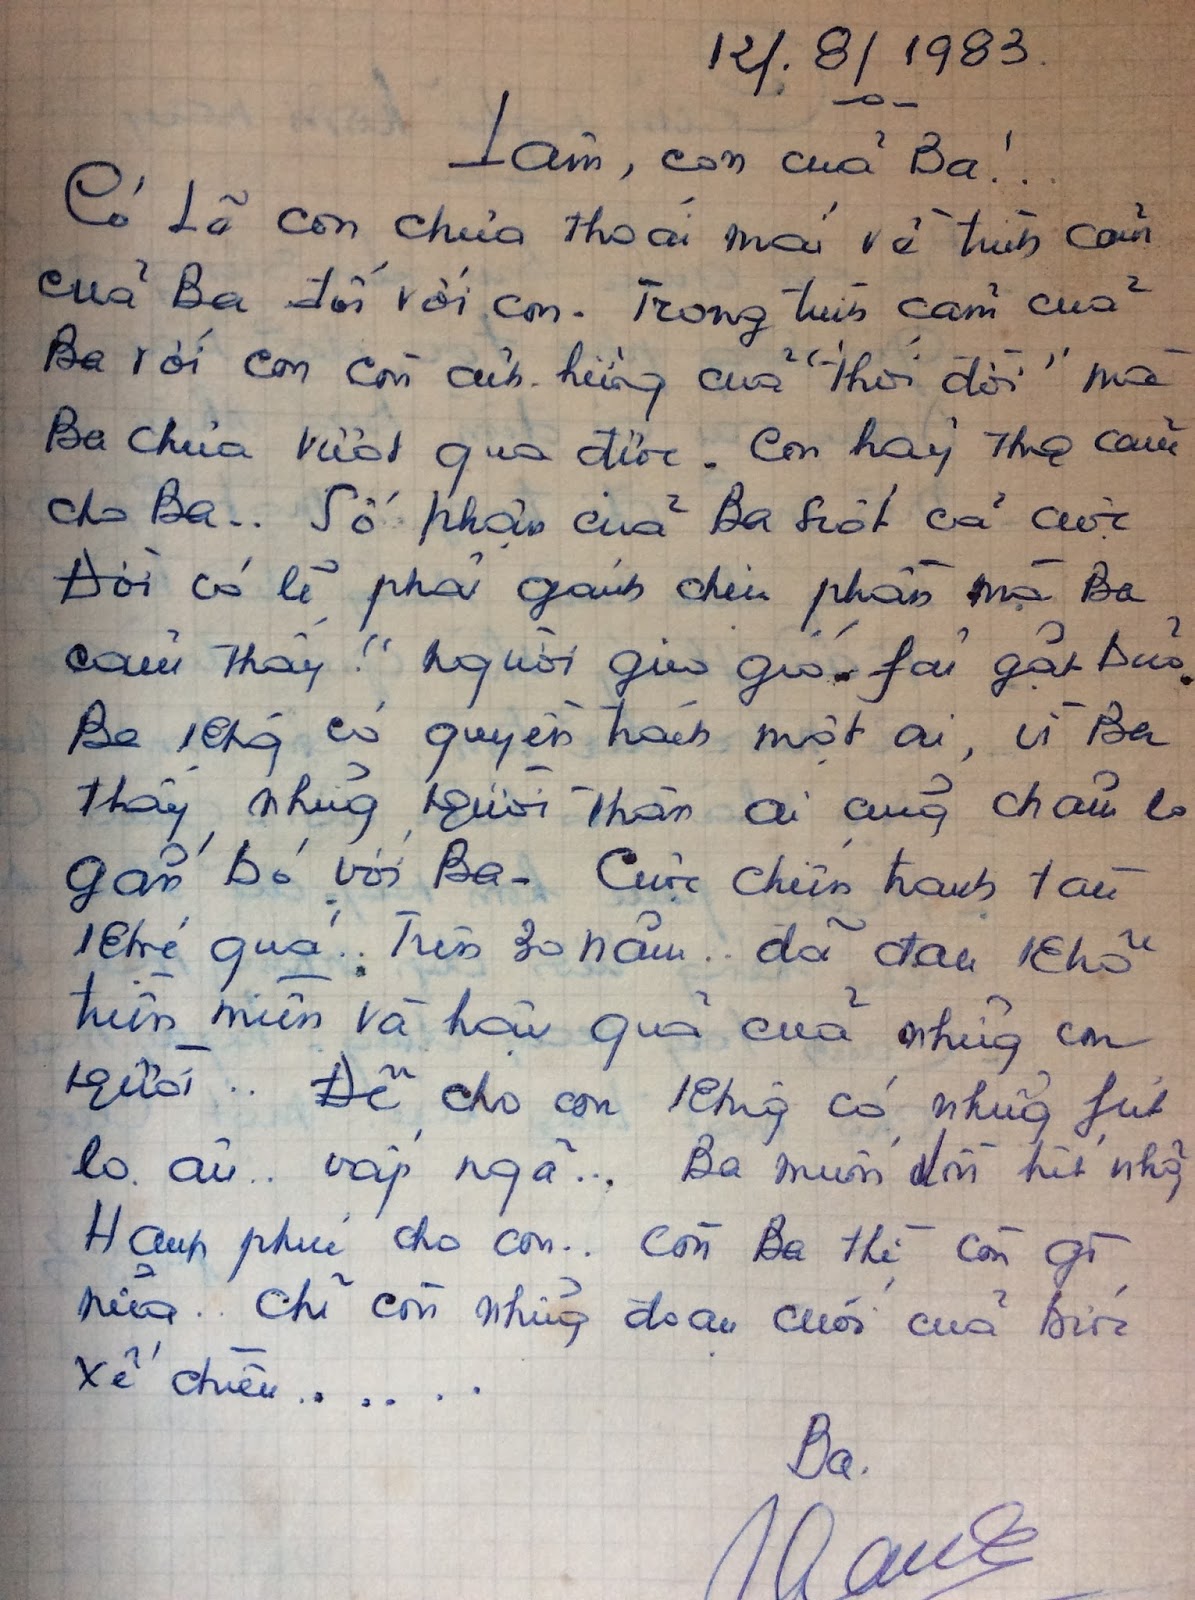 12/. 8/ 1983.
Lâm, con của Ba!..
Có Lẽ con chưa thoải mái về tình cảm
của Ba đối với con. Trong tình cảm của
Ba với con còn ảnh hưởng của "thời đời" mà
Ba chưa vượt qua được. Con hãy thông cảm
cho Ba.. Số phận của Ba suốt cả cuộc
Đời có lẽ phải gánh chịu phần mà Ba
cảm thấy "người gieo gió. fải gặt bão.
Ba không có quyền trách một ai, vì Ba
thấy những người thân ai cũng chăm lo
gắn bó với Ba. Cuộc chiến tranh tàn
khốc quá.. Trên 30 năm.. đã đau khổ
triền miên và hậu quả của những con
người.. Để cho con không có những fút
lo âu.. vấp ngã... Ba muốn dồn hết những
Hạnh phúc cho con.. Còn Ba thì còn gì
nữa.. chỉ còn những đoạn cuối của bước
xế chiều.....
Ba.